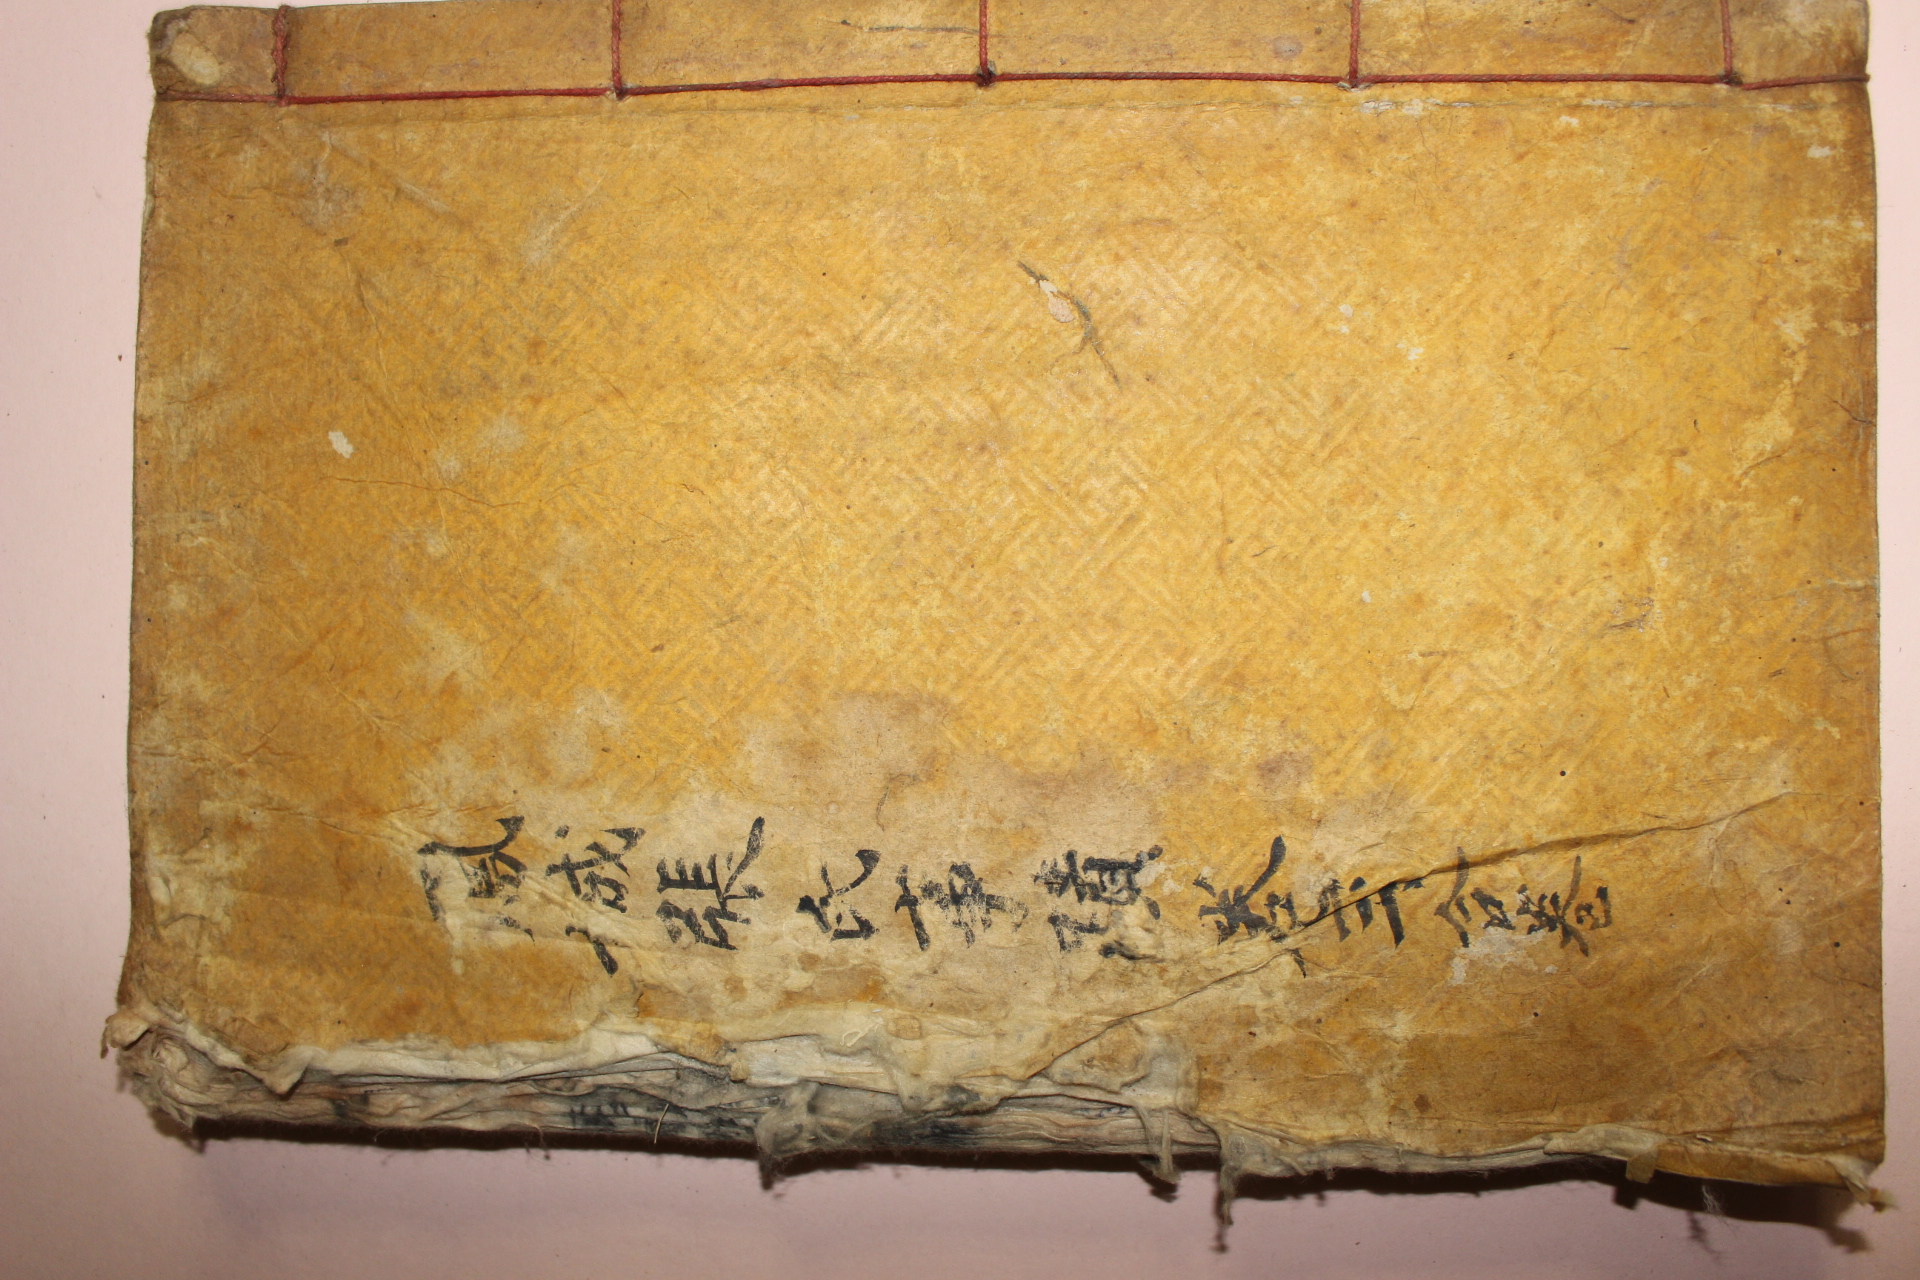 鳳城張氏事蹟卷弎合卷